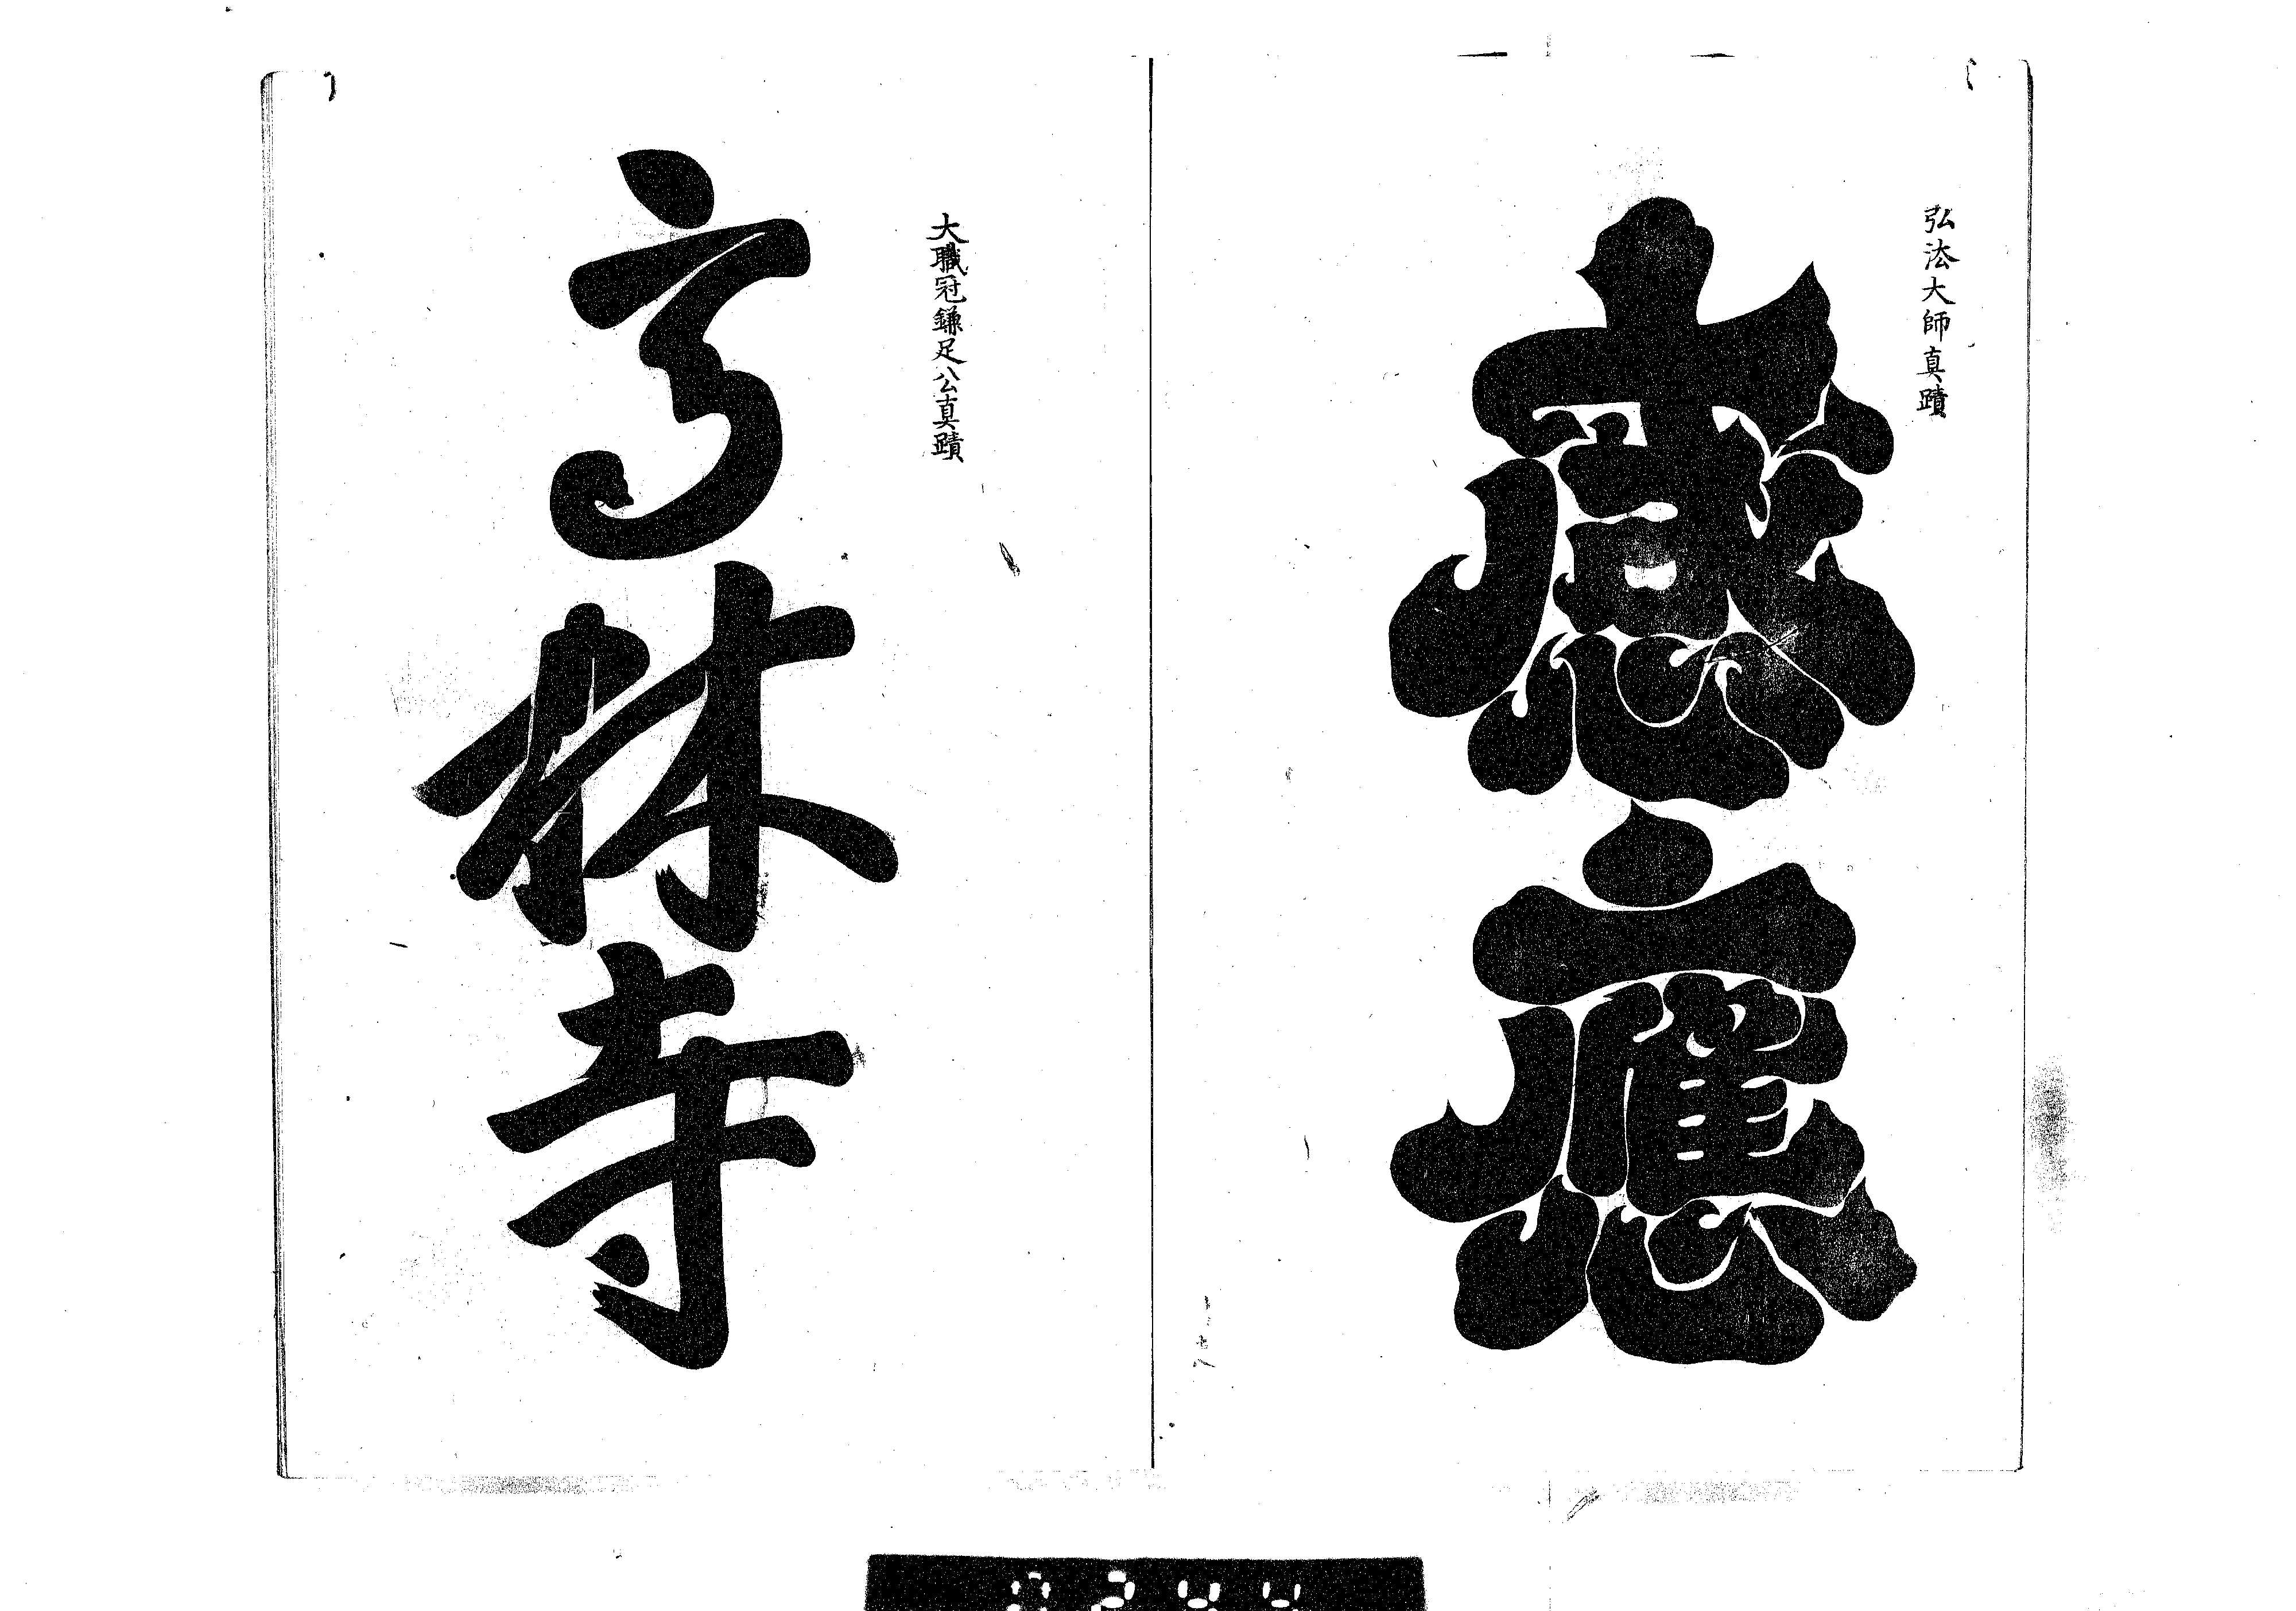 弘法大師真蹟
感應
大職冠鎌足公真蹟
高林寺